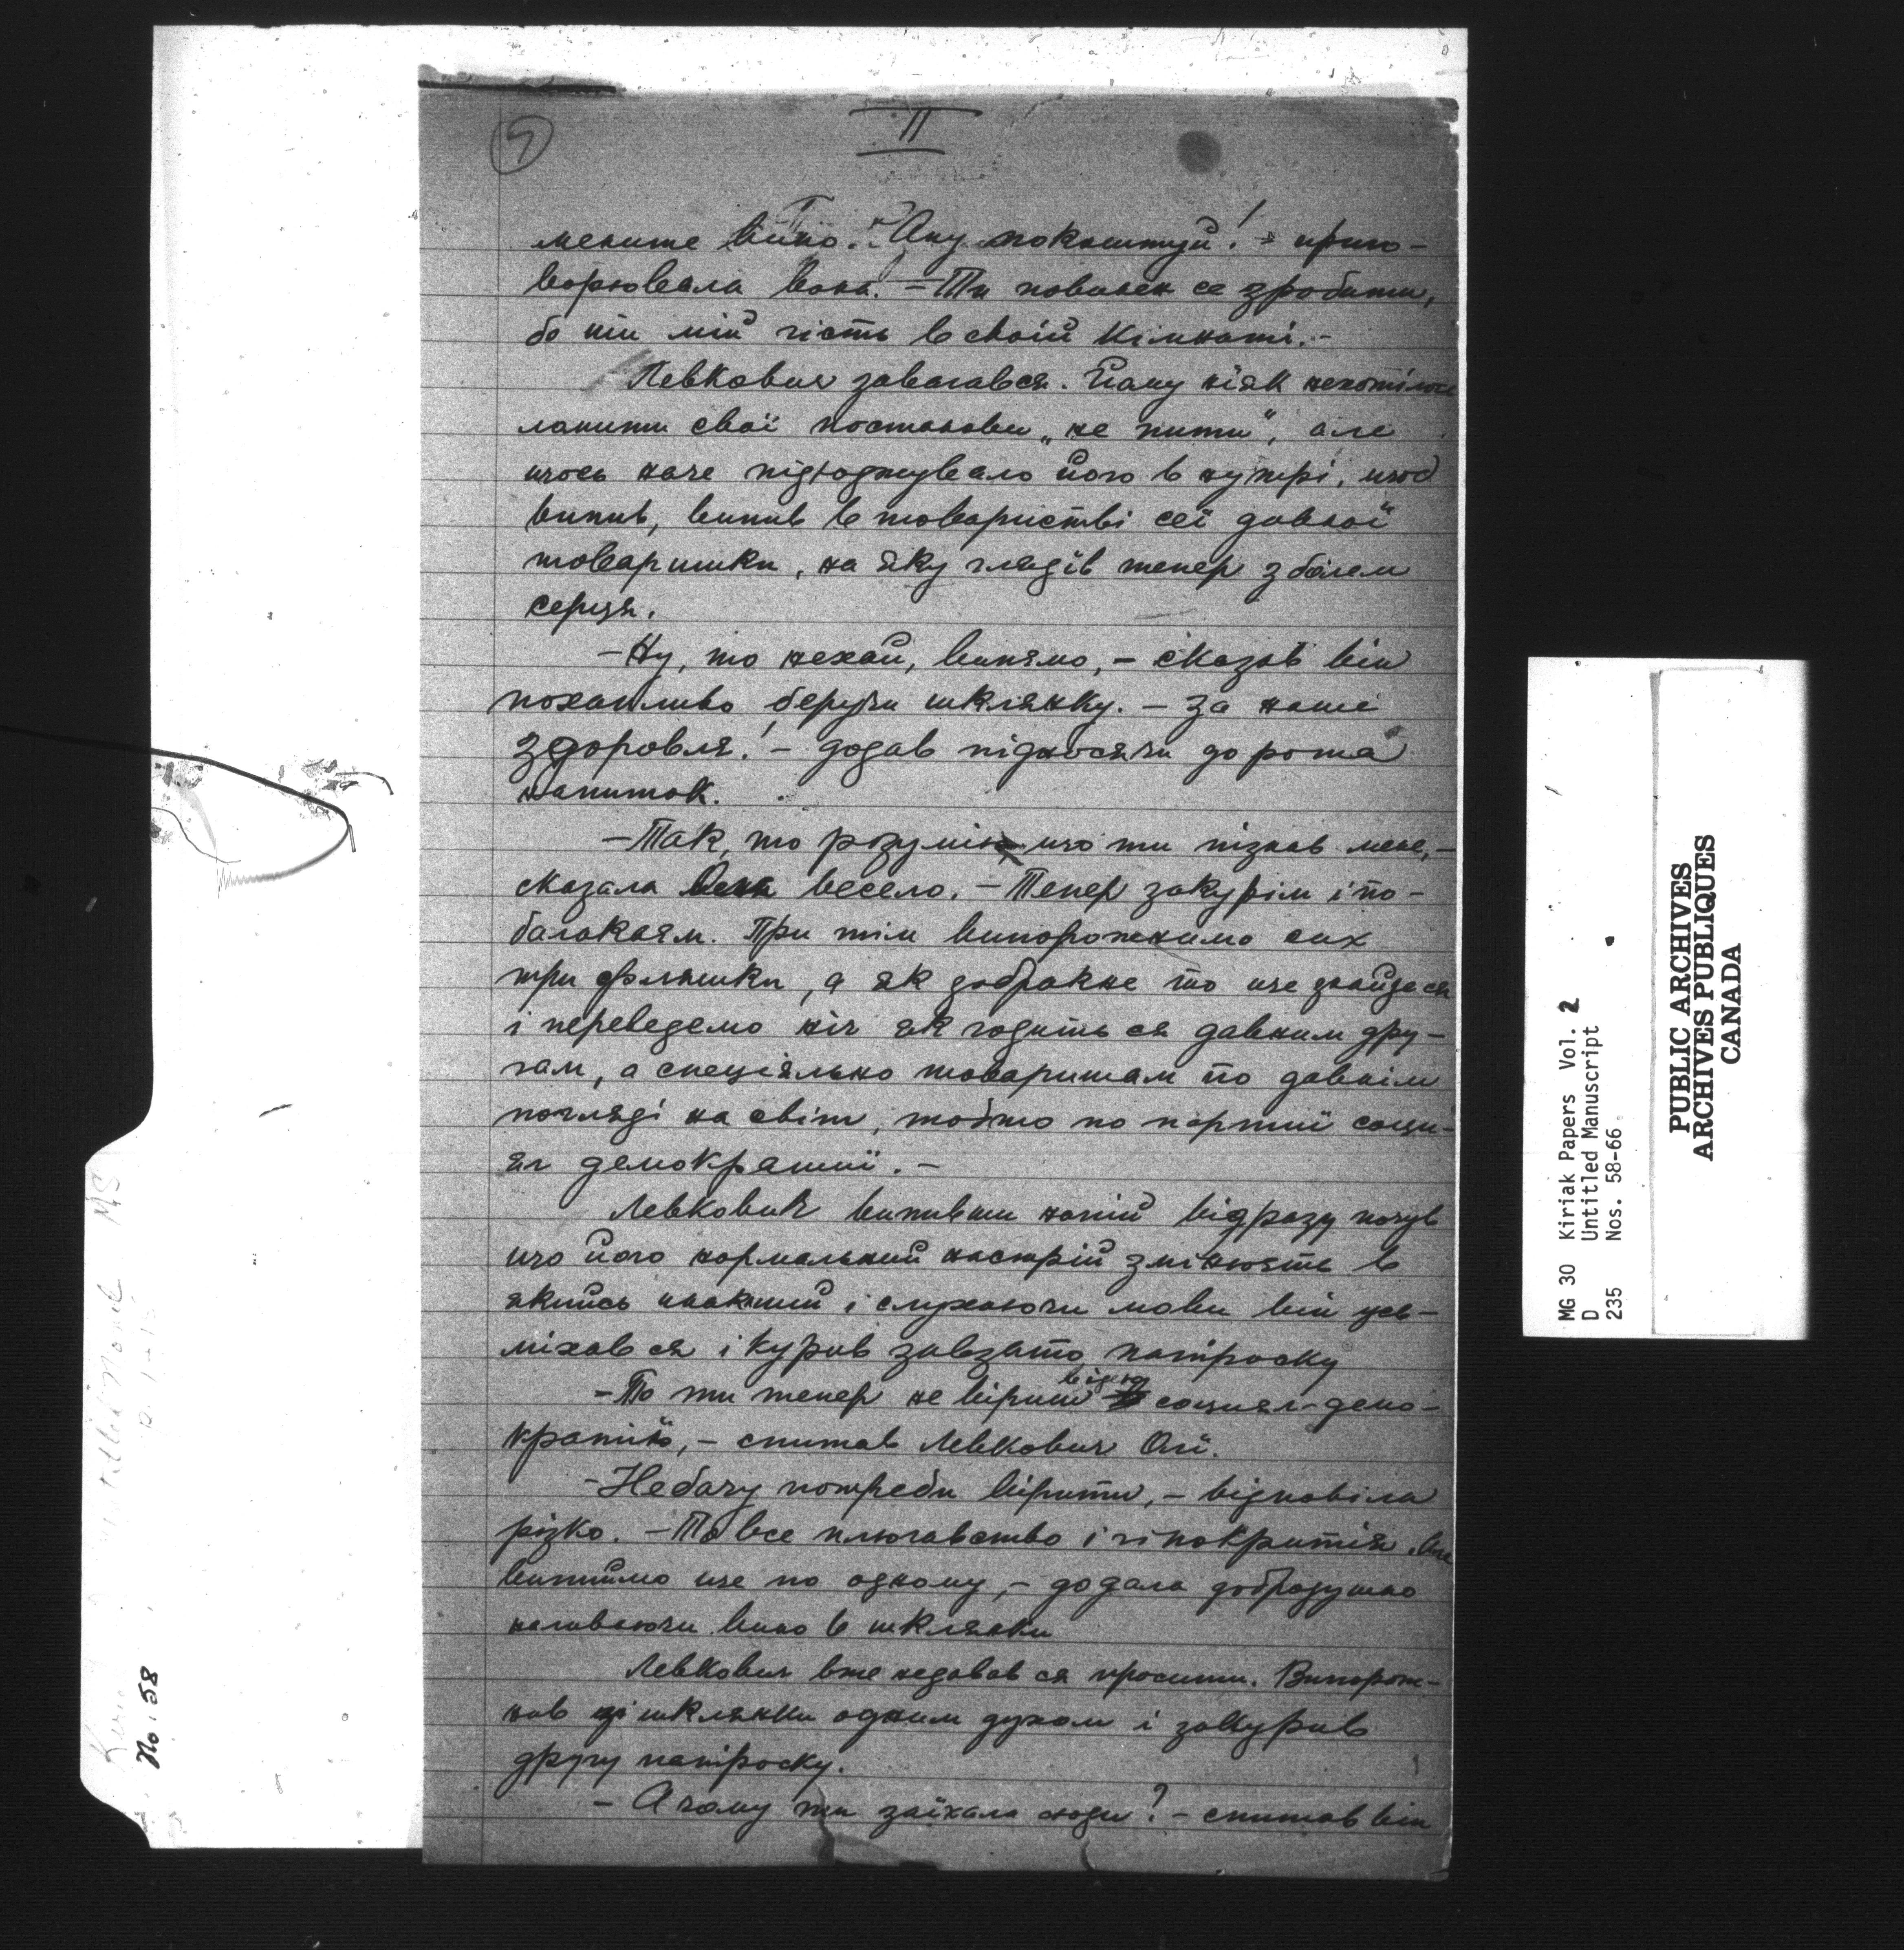 5
II
мените вино. Ану покоштуй! – приго-
ворювала вона. – Ти повинен се зробити,
бо ти мій гість в своїй кімнаті. –
Левкович завагався. Йому ніяк нехотілося
ломити свої постанови „не пити", але
щось наче підюджувало його в нутрі, щоб
випив, випив в товаристві сеї давної
товаришки, на яку глядів тепер з болем
серця.
– Ну, то нехай, випємо, – сказав він
похапливо беручи шклянку. – За наше
здоровля! – додав підносячи до рота
напиток.
– Так, то розумію що ти пізнав мене, –
сказала весело. – Тепер закурім і по-
балакаєм. При тім випорожнимо сих
три фляшки, а як забракне то ще знайдеся
і переведемо ніч як годить ся давним дру-
гам, а спеціяльно товаришам по давнім
погляді на світ, тобто по партиї соци-
ял демократиї. –
Левкович випивши напій відразу почув
що його нормальний настрій змінюєть в
якийсь инакший і слухаючи мови він усь-
міхав ся і курив завзято папіроску
– То ти тепер не віриш в соціял-демо-
кратію, – спитав Левкович Олі.
– Не бачу потреби вірити, – відповіла
різко. – То все плюгавство і гіпокритія. Але
випиймо ще по одному, – додала добродушно
наливаючи вино в шклянки
Левкович вже недавав ся просити. Випорож-
нив шклянки одним духом і закурив
другу папіроску.
– А чому ти заїхала сюди? – спитав він
No. 58
MG 30 Kiriak Papers Vol. 2
D Untitled Manuscript
235 Nos. 58-66
PUBLIC ARCHIVES
ARCHIVES PUBLIQUES
CANADA